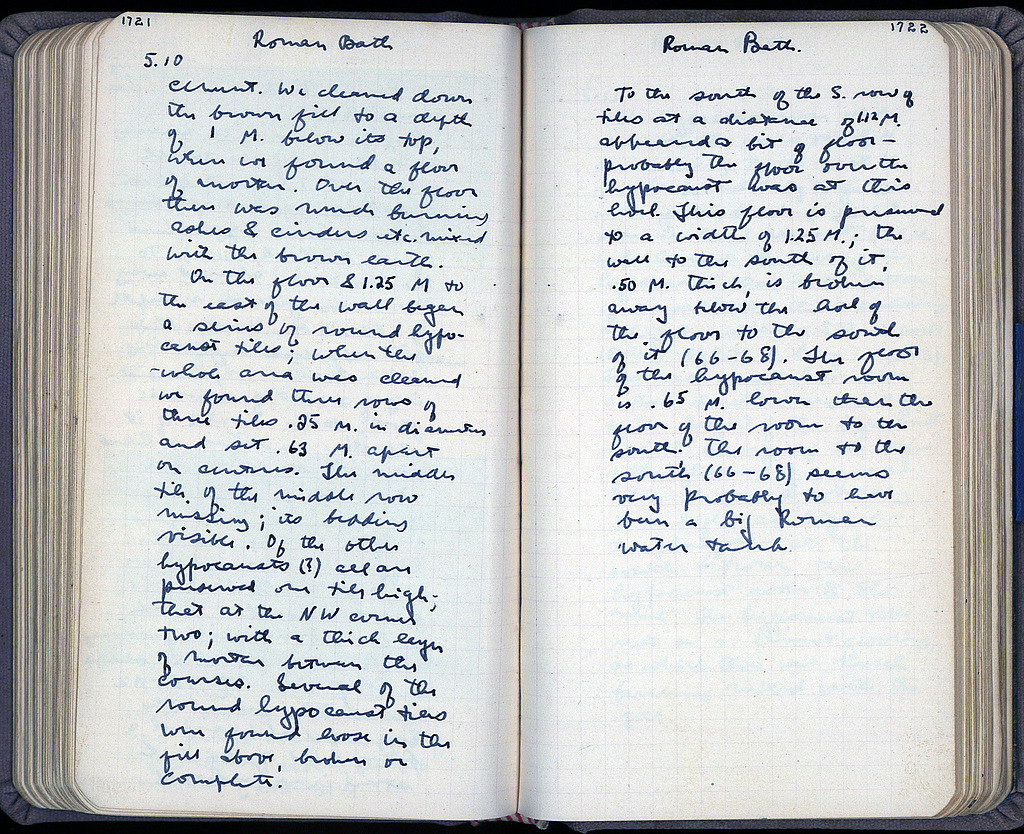 1721
Roman Bath
5.10
cement. We cleaned down
the brown fill to a depth
of 1 M. below its top,
when we found a floor
of mortar. Over the floor
there was much burning
ashes & cinders etc. mixed
with the brown earth.
On the floor & 1.25 M to
the east of the wall began
a series of round hypo-
caust tiles; when the
whole area was cleaned
we found three rows of
three tiles .25 M. in diameter
and set .63 M. apart
on centres. The middle
tile of the middle row
missing; its bedding
visible. Of the other
hypocausts (?) all are
preserved one tile high;
that at the NW corner
two; with a thick layer
of mortar between the
courses. Several of the
round hypocaust tiles
were found loose in the
fill above, broken or
complete.
1722
Roman Bath.
To the south of the S. row of
tiles at a distance of 1.12 M.
appeared a bit of floor –
probably the floor over the
hypocaust was at this
level. This floor is preserved
to a width of 1.25 M.; the
wall to the south of it,
.50 M. thick, is broken
away below the level of
the floor to the south
of it (66-68). The floor
of the hypocaust room
is .65 M. lower than the
floor of the room to the
south. The room to the
south (66-68) seems
very probably to have
been a big Roman
water tank.